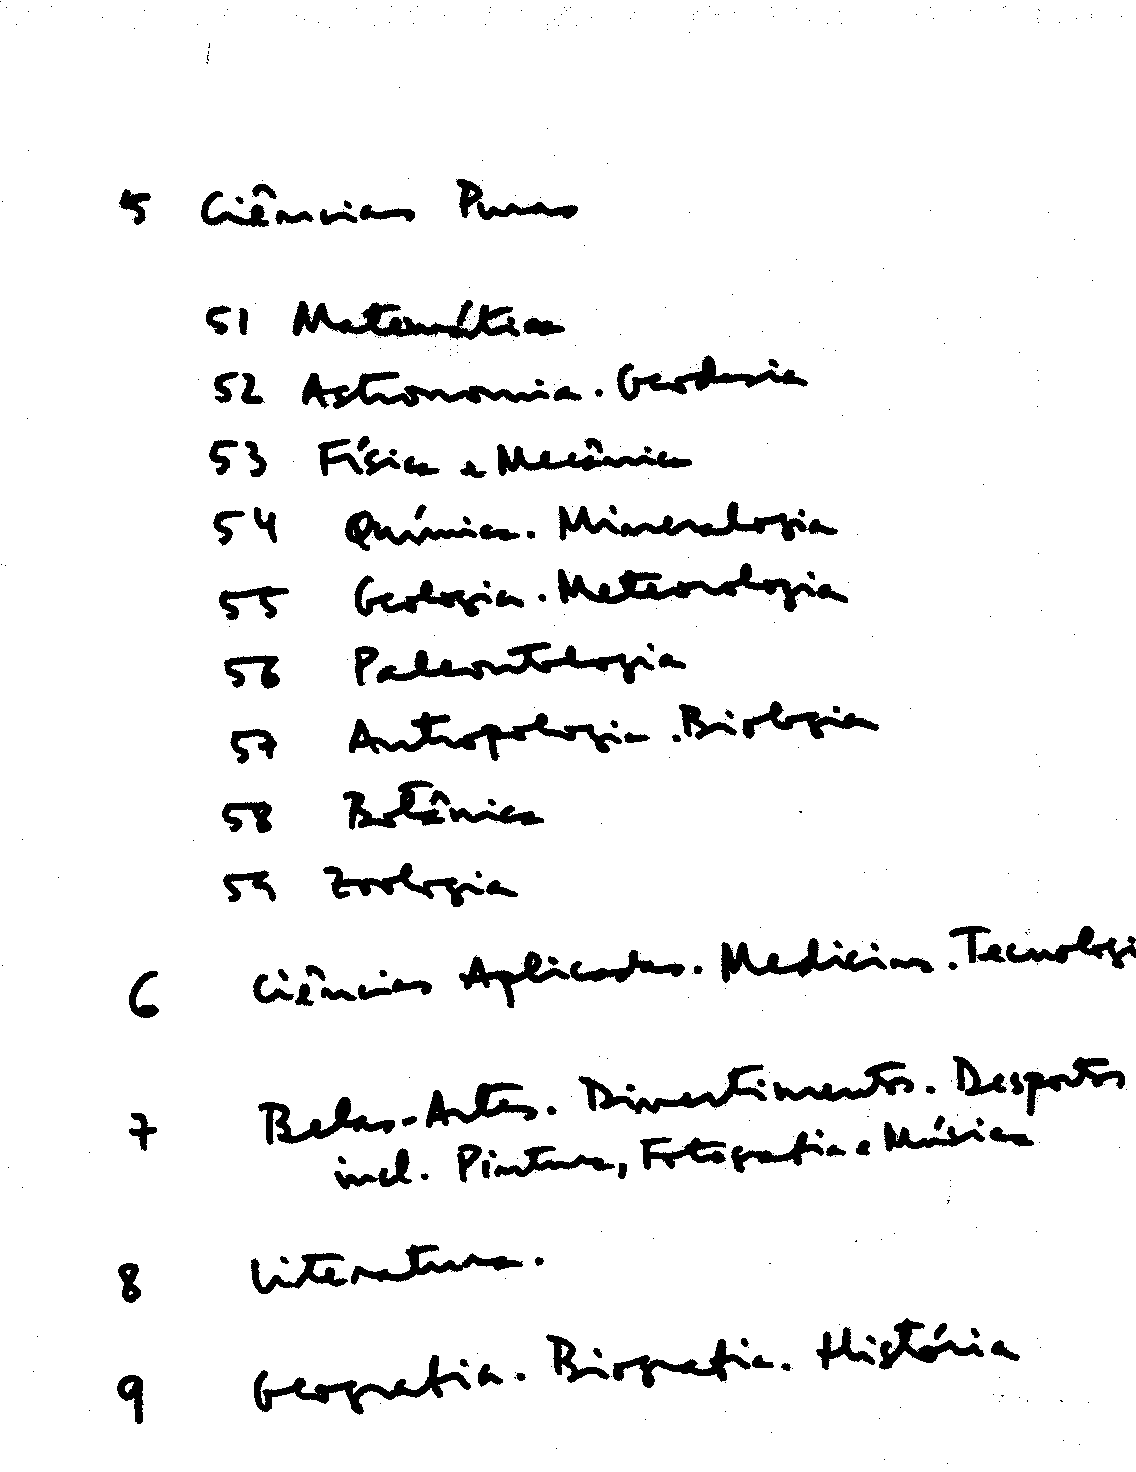 5 Ciências Puras
51 Matemática
52 Astronomia. Geodesia
53 Física e Mecânica
54 Química. Mineralogia
55 Geologia. Meteorologia
56 Paleontologia
57 Antropologia. Biologia
58 Botânica
59 Zoologia
6 Ciências Aplicadas. Medicina. Tecnologi
7 Belas-Artes. Divertimentos. Desportos
incl. Pintura, Fotografia e Música
8 Literatura.
9 Geografia. Biografia. História